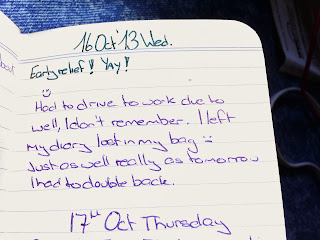 16 Oct '13 Wed.
Early relief! Yay!
Had to drive to work due to
well, I don't remember. I left
my diary lost in my bag
Just as well really as tomorrow
I had to double back.
17th Oct Thursday